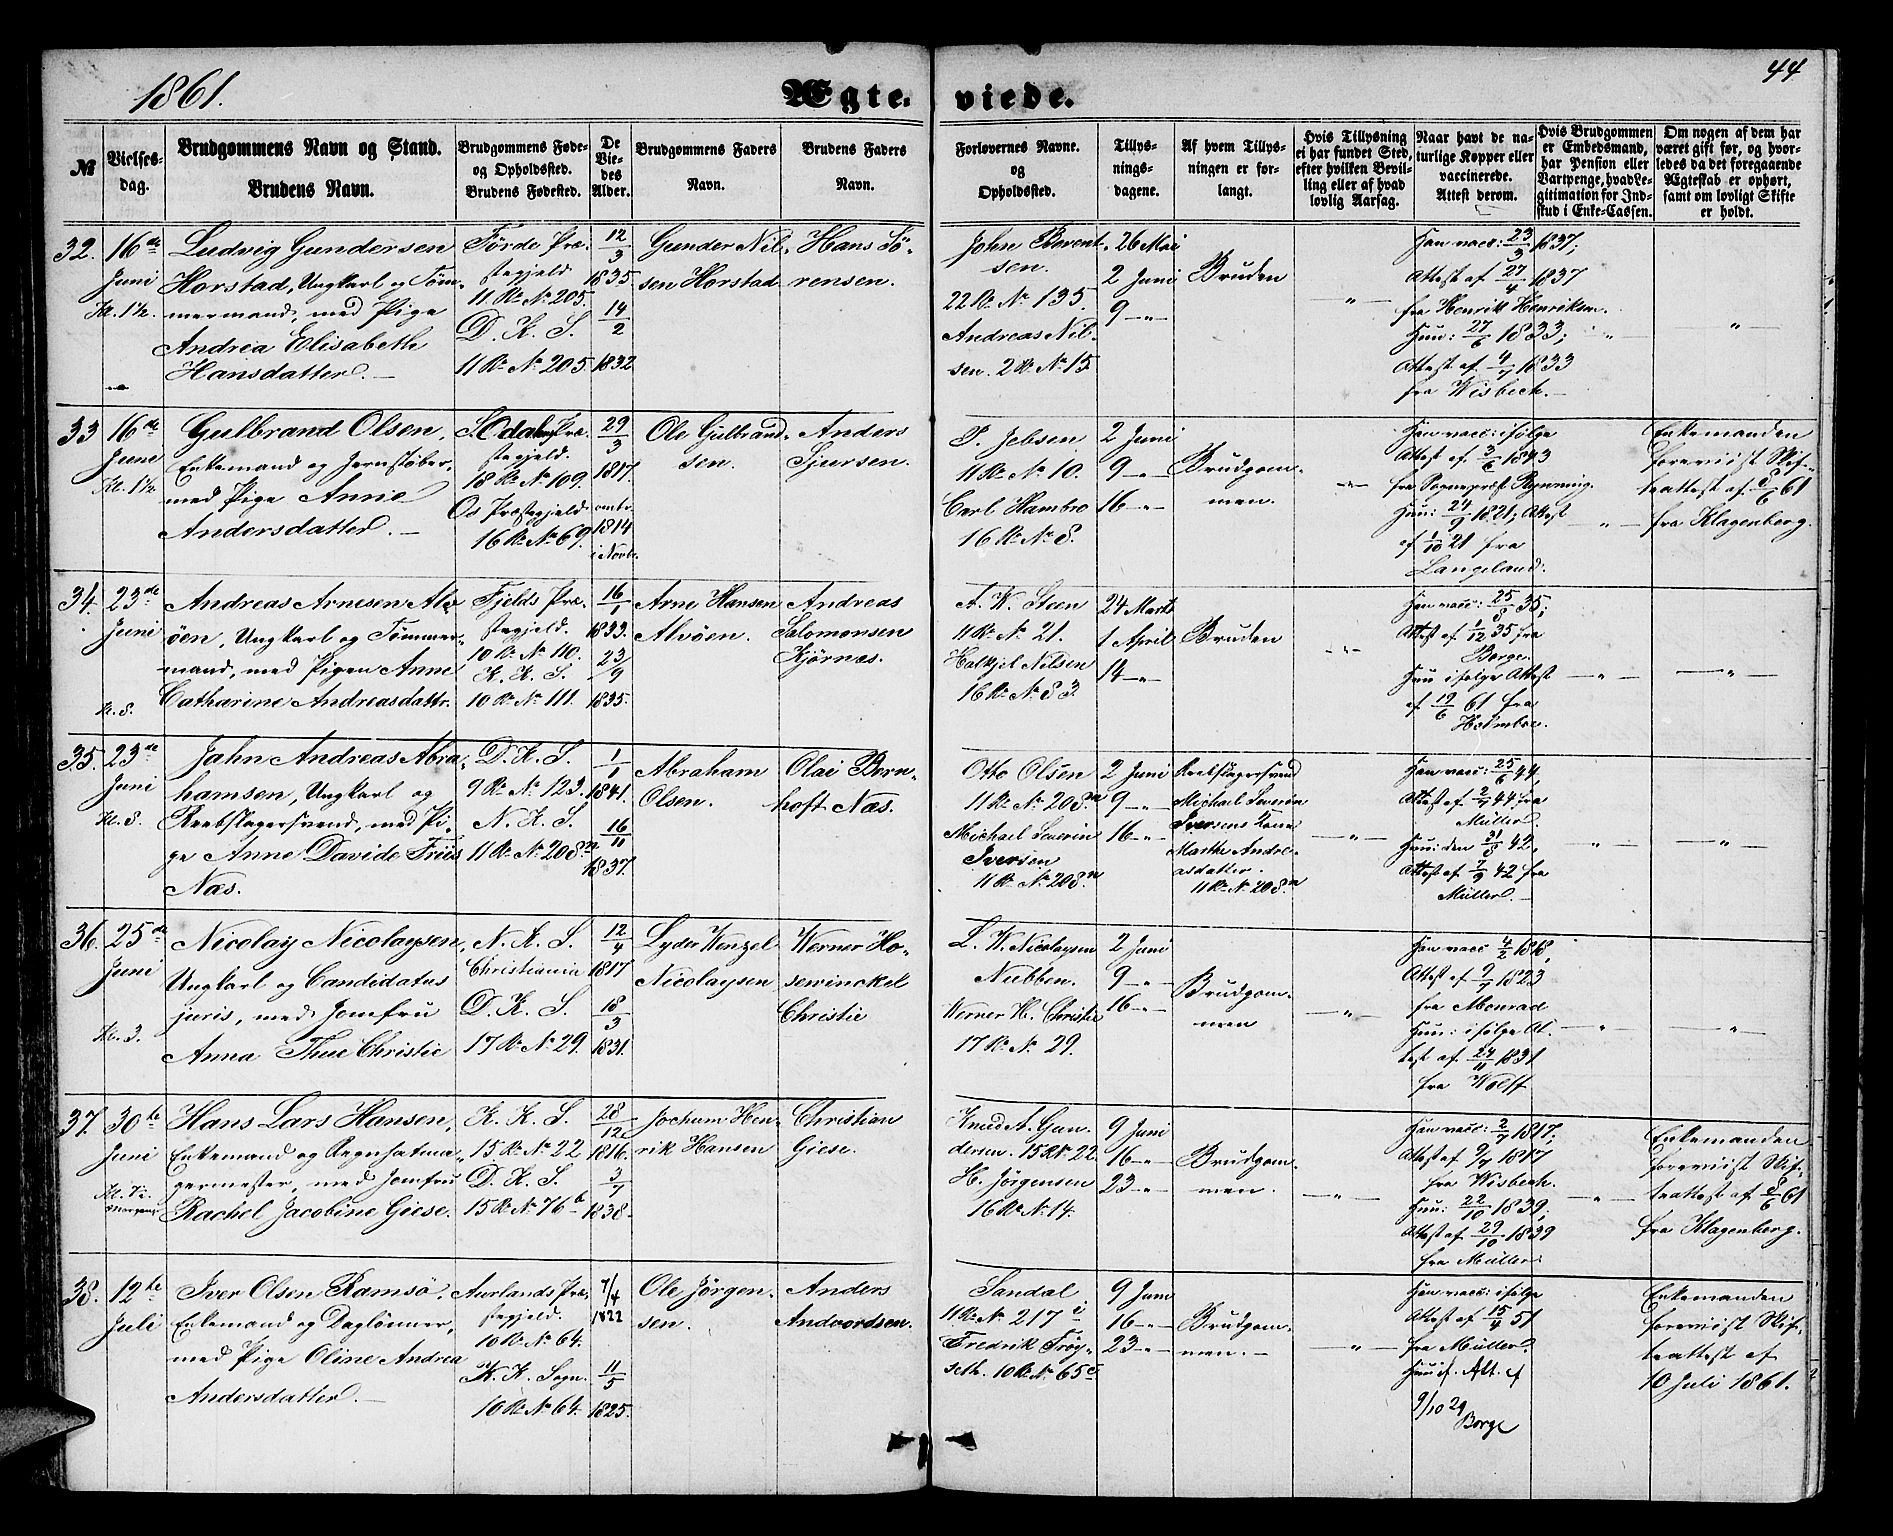 1861.
Ægte-
viede.
44
№
Vielses-
dag.
Brudgommens Navn og Stand.
Brudens Navn.
Brudgommens Føde-
og Opholdssted.
Brudens Fødested.
De
Vie-
des
Alder.
Brudgommens Faders
Navn.
Brudens Faders
Navn.
Forlovernes Navne.
og
Opholdssted.
Tillys-
nings-
dagene.
Af hvem Tillys-
ningen er for-
langt.
Hvis Tillysning
ei har fundet Sted,
efter hvilken Bevil-
ling eller af hvad
lovlig Aarsag.
Naar havt de na-
turlige Kopper eller
vaccinerede.
Attest derom.
Hvis Brudgommen
er Embedsmand,
har Pension eller
Vartpenge, hvad Le-
gitimation for Ind-
skud i Enke-Cassen.
Om nogen af dem har
været gift før, og hvor-
ledes da det foregaaende
Ægteskab er ophørt,
samt om lovligt Skifte
er holdt.
32.
16de
Juni
Kl. 1½.
Ludvig Gundersen
Horstad, Ungkarl og Tøm-
mermand, med Pige
Andrea Elisabeth
Hansdatter. —
Førde Præ-
stegjeld.
11 Rd. No 205.
D. K. S.
11 Rd. No 205.
12/3
1835.
14/2
1832
Gunder Nil-
sen Horstad
Hans Sø-
rensen.
John Berent-
sen.
22 Rd. No 135.
Andreas Nil-
sen. 2 Rd. No 15.
26 Mai
2 Juni
9 —"—
Bruden
Han vacc: 23/3 1837;
Attest af 27/4 1837
fra Henrik Henriksen.
Hun: 27/6 1833;
Attest af 4/7 1833
fra Wisbech.
33
16de
June
Kl. 1½
Gulbrand Olsen,
Enkemand og Jernstøber,
med Pige Anne
Andersdatter. —
S. Odalens Præ-
stegjeld.
18 Rd. No 109.
Os Præstegjeld.
16 Rd. No 69.
29/3
1817.
omtr.
1814
i Novbr.
Ole Gulbrand-
sen.
Anders
Sjursen.
P. Jebsen
11 Rd. No 10.
Carl Hambro
16 Rd. No 8.
2 Juni
9 —"—
16 —"—
Brudgom-
men.
Han vacc: ifølge
Attest af 3/6 1843
fra Sognepræst Rynning.
Hun: 24/9 1821; Attest
af 1/10 21 fra
Langeland.
Enkemanden
foreviist Skif-
teattest af 5/6 61
fra Klagenberg.
34.
23de
Juni
Kl. 8.
Andreas Arnesen Alv-
øen, Ungkarl og Tømmer-
mand, med Pigen Anne
Catharine Andreasdattr.
Fjelds Præ-
stegjeld.
10 Rd. No 110.
K. K. S.
10 Rd. No 111.
16/1
1833.
23/9
1835.
Arne Hansen
Alvøen.
Andreas
Salomonsen
Kjørnæs.
A. W. Steen
11 Rd. No 21.
Halkjel Nilsen
16 Rd. No 83.
24 Marts
1 April
14 —"—
Bruden
Han vacc: 25/8 35;
Attest af 1/12 35 fra
Borge.
Hun ifølge Attest
af 19/6 61 fra
Holmboe.
35.
23de
Juni
Kl. 8.
Jahn Andreas Abra-
hamsen, Ungkarl og
Reebslagersvend, med Pi-
ge Anne Davide Friis
Næs.
D. K. S.
9 Rd. No 123.
N. K. S.
11 Rd. No 208.n
1/1
1841.
16/11
1837.
Abraham
Olsen.
Olai Born-
hoft Næs.
Otto Olsen
11 Rd. No 208n
Michael Severin
Iversen
11 Rd. No 208.n
2 Juni
9 —"—
16 —"—
Reebslagersvend
Michael Severin
Iversens Kone
Marthe Andre-
asdatter.
11 Rd. No 208.n
Han vacc: 25/6 44,
Attest af 2/7 44 fra
Müller.
Hun: den 31/8 42,
Attest af 7/9 42 fra
Müller. —
36.
25de
Juni
Kl. 3.
Nicolay Nicolaysen,
Ungkarl og Candidatus
juris, med Jomfru
Anna Thue Christie
N. K. S.
Christiania
D. K. S.
17 Rd. No 29.
12/4
1817
18/3
1831.
Lyder Wenzel
Nicolaysen
Werner Ho-
sewinckel
Christie
L. W. Nicolaysen
Nubben.
Werner H. Christie
17 Rd. No 29.
2 Juni
9 —"—
16 —"—
Brudgom-
men
Han vacc 4/2 1818,
Attest af 9/7 1823
fra Monrad
Hun: ifølge At-
test af 24/11 1831
fra Wolff
37.
30te
Juni
Hans Lars Hansen,
Enkemand og Regnskabsma-
germester, med Jomfru
Rachel Jacobine Giese.
K. K. S.
15 Rd. No 22
D. K. S.
15 Rd. No 76b
28/12
1816.
3/7
1838.
Jochum Hen-
rik Hansen
Christian
Giese.
Knud A. Gun-
dersen. 15 Rd. No 22.
H. Jörgensen
16 Rd. No 14.
9 Juni
16 —"—
23 —"—
Brudgom-
men.
Han vacc: 2/7 1817;
Attest af 9/7 1817
fra Wisbech.
Hun: 22/10 1839,
Attest af 29/10 1839
fra Müller.
Enkemanden
foreviist Skif-
teattest af 8/6 61
fra Klagenberg.
38.
12te
Juli
Iver Olsen Ramsö,
Enkemand og Daglönner,
med Pige Oline Andrea
Andersdatter. —
Aurlands Præ-
stegjeld.
10 Rd. No 64.
K. K. Sogn.
10 Rd. No 64.
7/4
1822
11/5
1825.
Ole Jörgen-
sen.
Anders
Andvordsen.
Sandal
11 Rd. No 217 i
Fredrik Frøy-
seth. 10 Rd. No 65c
9 Juni
16 —"—
23 —"—
Brudgom-
men. —
Han vacc: ifølge
Attest af 15/4 51
fra Müller.
Hun if. Att. af
9/10 29
Borge
Enkemanden
foreviist Skif-
teattest af
10 Juli 1861.